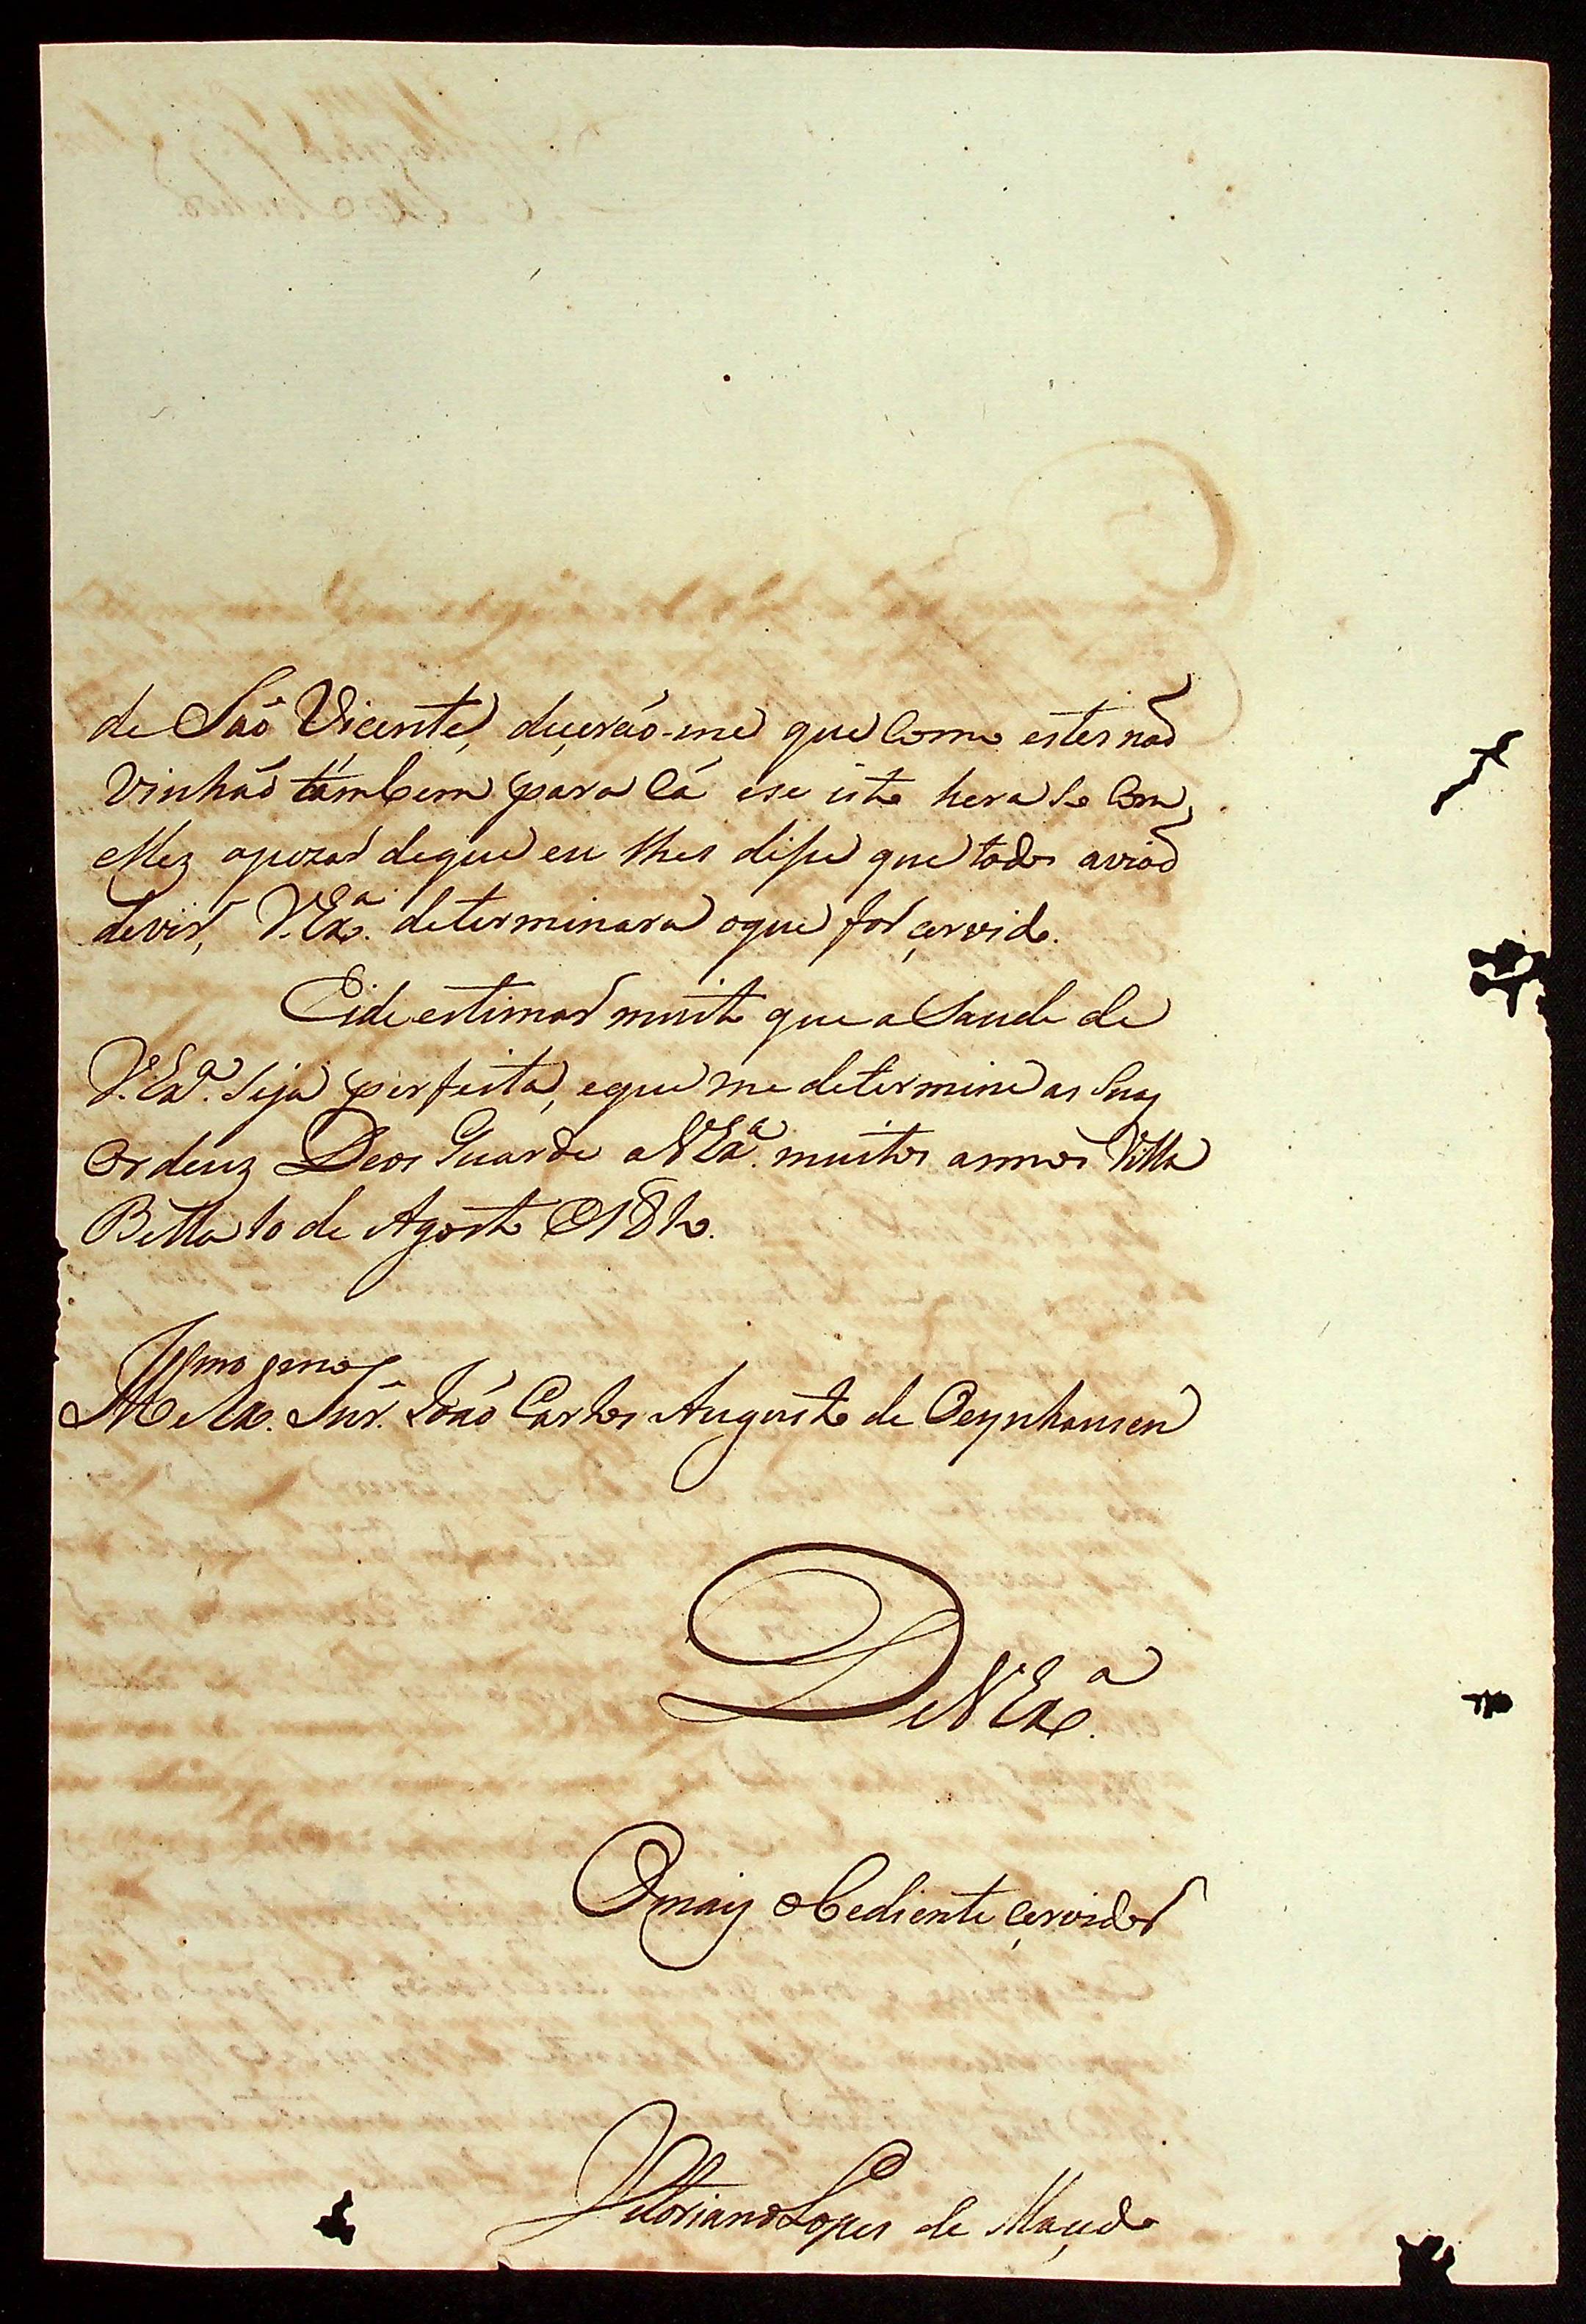 de Saõ Vicente, diçeraõ-me que como estes naõ
vinhaõ támbem para lá ese iste hera so com
elles apezar deque eu lhes dise que todos aviaõ
devir, V. Exª. determinara oque for çervido.
Eide estimar muito que a Saude de
V. Exª. Seja perfeita, eque me determine as Suas
Ordens Deos Guarde a V Exª. muitos annos Villa
Bella 10 de Agosto 1812.
Illmo e Exmo Snr. Joaõ Carlos Augusto de Oeynhausen
De V Exª.
O mais obediente çervidor
Vitoriano Lopes de Maçedo